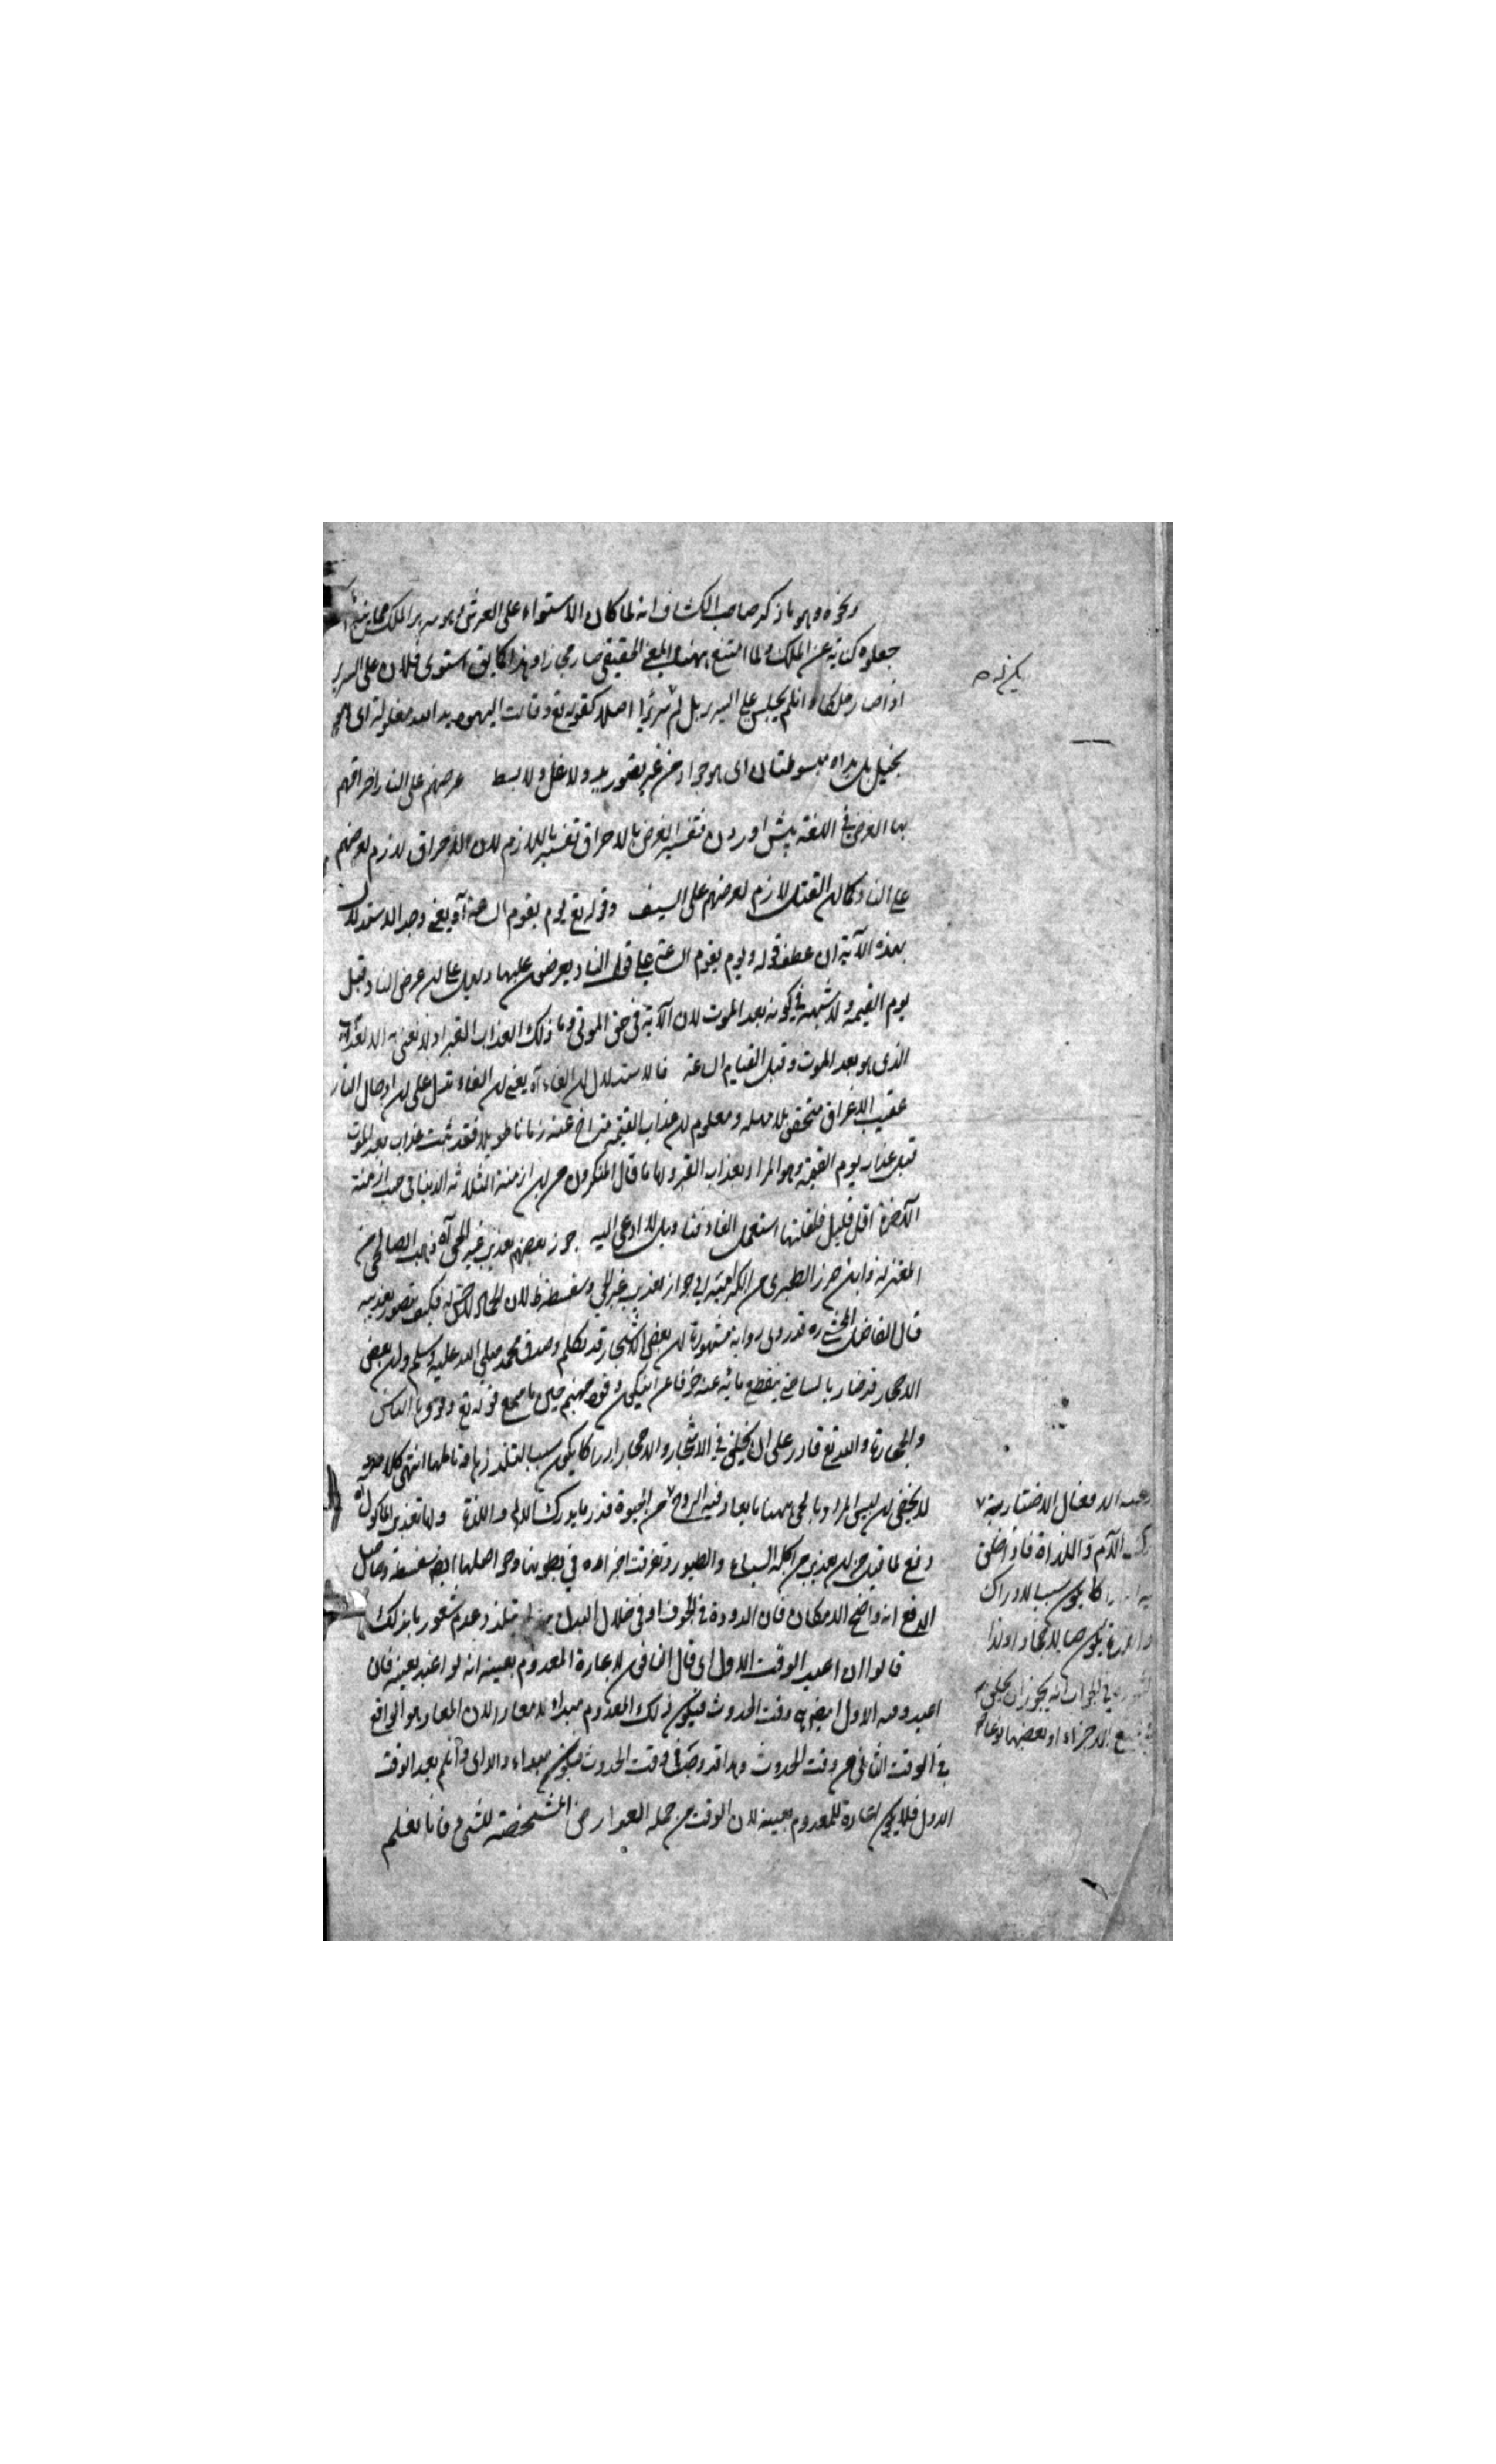 ونحوه وهو ما ذكر صاحب الكشاف انه لما كان الاستواء على العرش وهو سرير الملك مما
جعلوه كناية عن الملك ولما امتنع ههنا المعنى الحقيقى صار مجازا وهذا كما يق استوى فلان على السرير
اذا صار ملكا وانلم يجلس على السرير بل لم ير سريرا اصلا كقوله تع وقالت اليهود يد الله مغلولة اى هو
بخيل بل يداه مبسوطتان اى هو جواد من غير تصور يد ولا غل ولا بسط عرضهم على النار احراقهم
بها العرض فى اللغة پيش اوردن فتفسير العرض بالاحراق تفسير باللازم لان الاحراق لازم لعرضهم
على النار كما ان القتل لازم لعرضهم على السيف وقوله تع يوم يقوم الساعة آه يعنى وجه الاستدلال
بهذه الآية ان عطف قوله ويوم يقوم الساعة على قوله النار يعرضون عليها دليل على ان عرض النار قبل
يوم القيمة ولا شبهة فى كونه بعد الموت لان الآية فى حق الموتى وما ذلك الا عذاب القبر اذ لا نعنى به الا العذاب
الذى هو بعد الموت وقبل القيام الساعة فالاستدلال ان الفاء آه يعنى ان الفاء تدل على ان ادخال النار
عقيب الاغراق متحقق بلا مهلة ومعلوم ان عذاب القيمة متراخ عنه زمانا طويلا فقد ثبت عذاب بعد الموت
قبل عذاب يوم القيمة وهو المراد بعذاب القبر واما ما قال المنكرون من ان ازمنة الثلاثة الدنيا فى جنب ازمنة
الآخرة اقل قليل فلقلتها استعمل الفاء فتاويل لا داعى اليه جوز بعضهم تعذيب غير الحى آه ذهب الصالحى من
المعتزلة وابن جرير الطبرى من الكرامية الى جواز تعذيب غير الحى وسفسطة ظ لان الجماد لا حس له فكيف يتصور تعذيبه
قال الفاضل المحشى ره قد روى رواية مشهورة ان بعض الاشجار قد تكلم وصدق محمد صلى الله عليه وسلم وان بعض
الاحجار
والحجارة والله تع قادر على ان يخلق فى الاشجار والاحجار ادراكا يكون سببا لتلذذها وتالمها انتهى كلامه
لا يخفى ان ليس المراد بالحى ههنا ما يعاد فيه الروح من الحيوة قدر ما يدرك الالم واللذة واما تعذيب الماكول آه
دفع لما قيل من ان تعذيب من اكله السباع والطيور وتفرقت اجزاءه فى بطونها وحواصلها ايضا سفسطة وحاصل
الدفع انه واضح الامكان فان الدودة فى الجوف او فى خلال البدن تتلذذ وعدم شعورنا بذلك
قالوا ان اعيد الوقت الاول اى قال النافى لاعادة المعدوم بعينه انه لو اعيد بعينه فان
اعيد وقته الاول ايضا وقت الحدوث فيكون ذلك المعدوم مبدا لا معادا لان المعاد هو الواقع
فى الوقت الثانى من وقت الحدوث وهذا قد وجد فى وقت الحدوث فيكون مبداء والا اى وانلم يعد الوقت
الاول فلا يكون اعادة للمعدوم بعينه لان الوقت من جملة العوارض المشخصة للشى فانا نعلم
الافعال الاختيارية
الآلام واللذاة فاذا خلق
يكون سببا لادراك
فى الجواب انه يجوز ان يخلق
جميع الاجزاء او بعضها نوعا